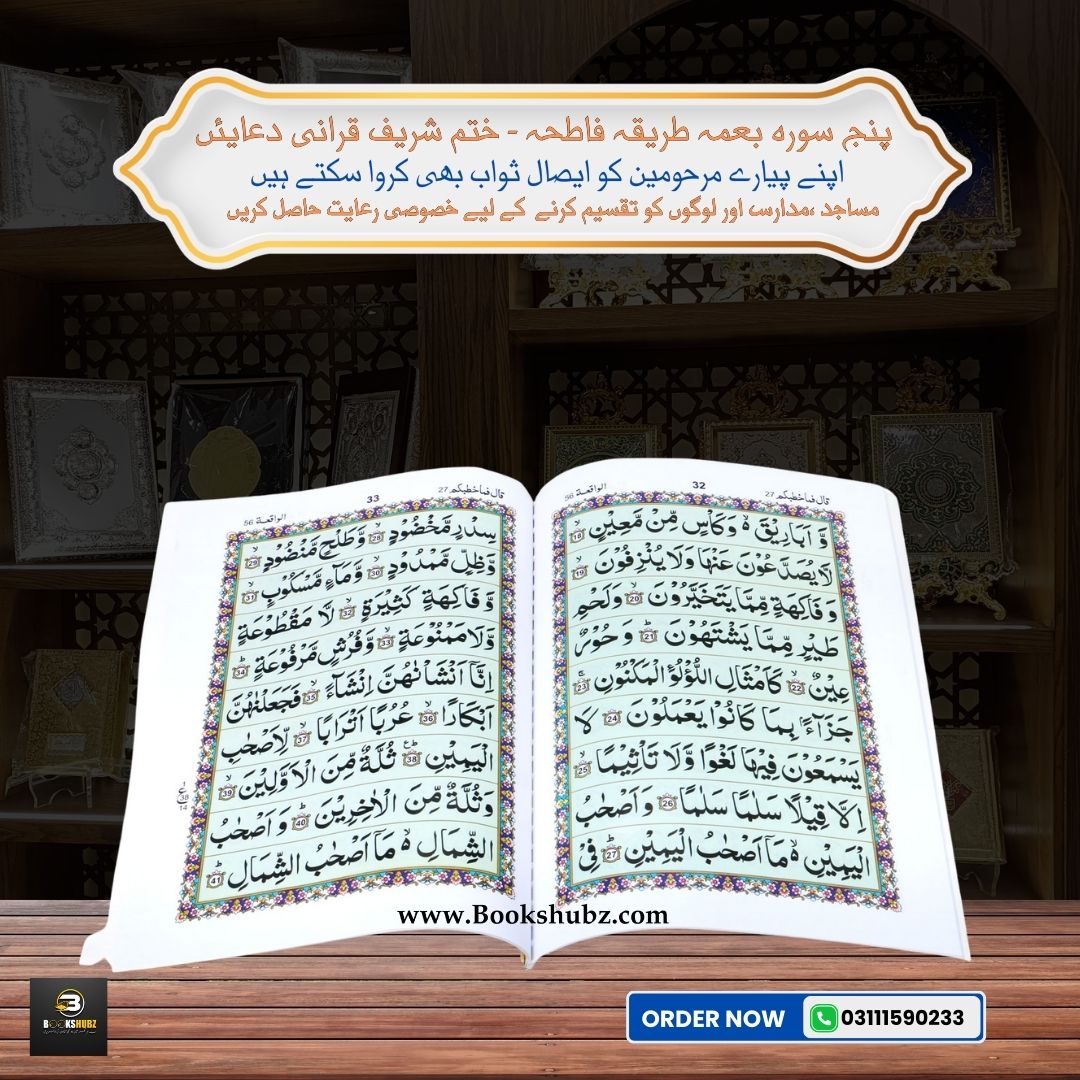 پنج سورہ بعمہ طریقہ فاطحہ - ختم شریف قرانی دعایئں
اپنے پیارے مرحومین کو ایصال ثواب بھی کروا سکتے ہیں
مساجد ،مدارس اور لوگوں کو تقسیم کرنے کے لیے خصوصی رعایت حاصل کریں
الواقعة 56
32
قال فماخطبکم 27
وَّ اَبَارِیْقَ ۙ وَ کَاْسٍ مِّنْ مَّعِیْنٍ ۙ 18
لَّا یُصَدَّعُوْنَ عَنْهَا وَلَا یُنْزِفُوْنَ ۙ 19
وَ فَاکِهَةٍ مِّمَّا یَتَخَیَّرُوْنَ ۙ 20 وَلَحْمِ
طَیْرٍ مِّمَّا یَشْتَهُوْنَ ؕ 21 وَ حُوْرٌ
عِیْنٌ ۙ 22 کَاَمْثَالِ اللُّؤْلُؤِ الْمَکْنُوْنِ ۚ 23
جَزَآءًۢ بِمَا کَانُوْا یَعْمَلُوْنَ 24 لَا
یَسْمَعُوْنَ فِیْهَا لَغْوًا وَّلَا تَاْثِیْمًا ۙ 25
اِلَّا قِیْلًا سَلٰمًا سَلٰمًا 26 وَ اَصْحٰبُ
الْیَمِیْنِ ۙ مَاۤ اَصْحٰبُ الْیَمِیْنِ ؕ 27 فِیْ
الواقعة 56
33
قال فماخطبکم 27
سِدْرٍ مَّخْضُوْدٍ ۙ 28 وَّ طَلْحٍ مَّنْضُوْدٍ ۙ 29
وَّ ظِلٍّ مَّمْدُوْدٍ ۙ 30 وَّمَآءٍ مَّسْکُوْبٍ ۙ 31
وَّ فَاکِهَةٍ کَثِیْرَةٍ ۙ 32 لَّا مَقْطُوْعَةٍ
وَّلَا مَمْنُوْعَةٍ ۙ 33 وَّ فُرُشٍ مَّرْفُوْعَةٍ ؕ 34
اِنَّاۤ اَنْشَاْنٰهُنَّ اِنْشَآءً ۙ 35 فَجَعَلْنٰهُنَّ
اَبْکَارًا ۙ 36 عُرُبًا اَتْرَابًا ۙ 37 لِّاَصْحٰبِ
الْیَمِیْنِ ؕ 38 ثُلَّةٌ مِّنَ الْاَوَّلِیْنَ ۙ 39
وَ ثُلَّةٌ مِّنَ الْاٰخِرِیْنَ ؕ 40 وَ اَصْحٰبُ
الشِّمَالِ ۙ مَاۤ اَصْحٰبُ الشِّمَالِ ؕ 41
ع
38
14
www.Bookshubz.com
BOOKSHUBZ
ORDER NOW
03111590233